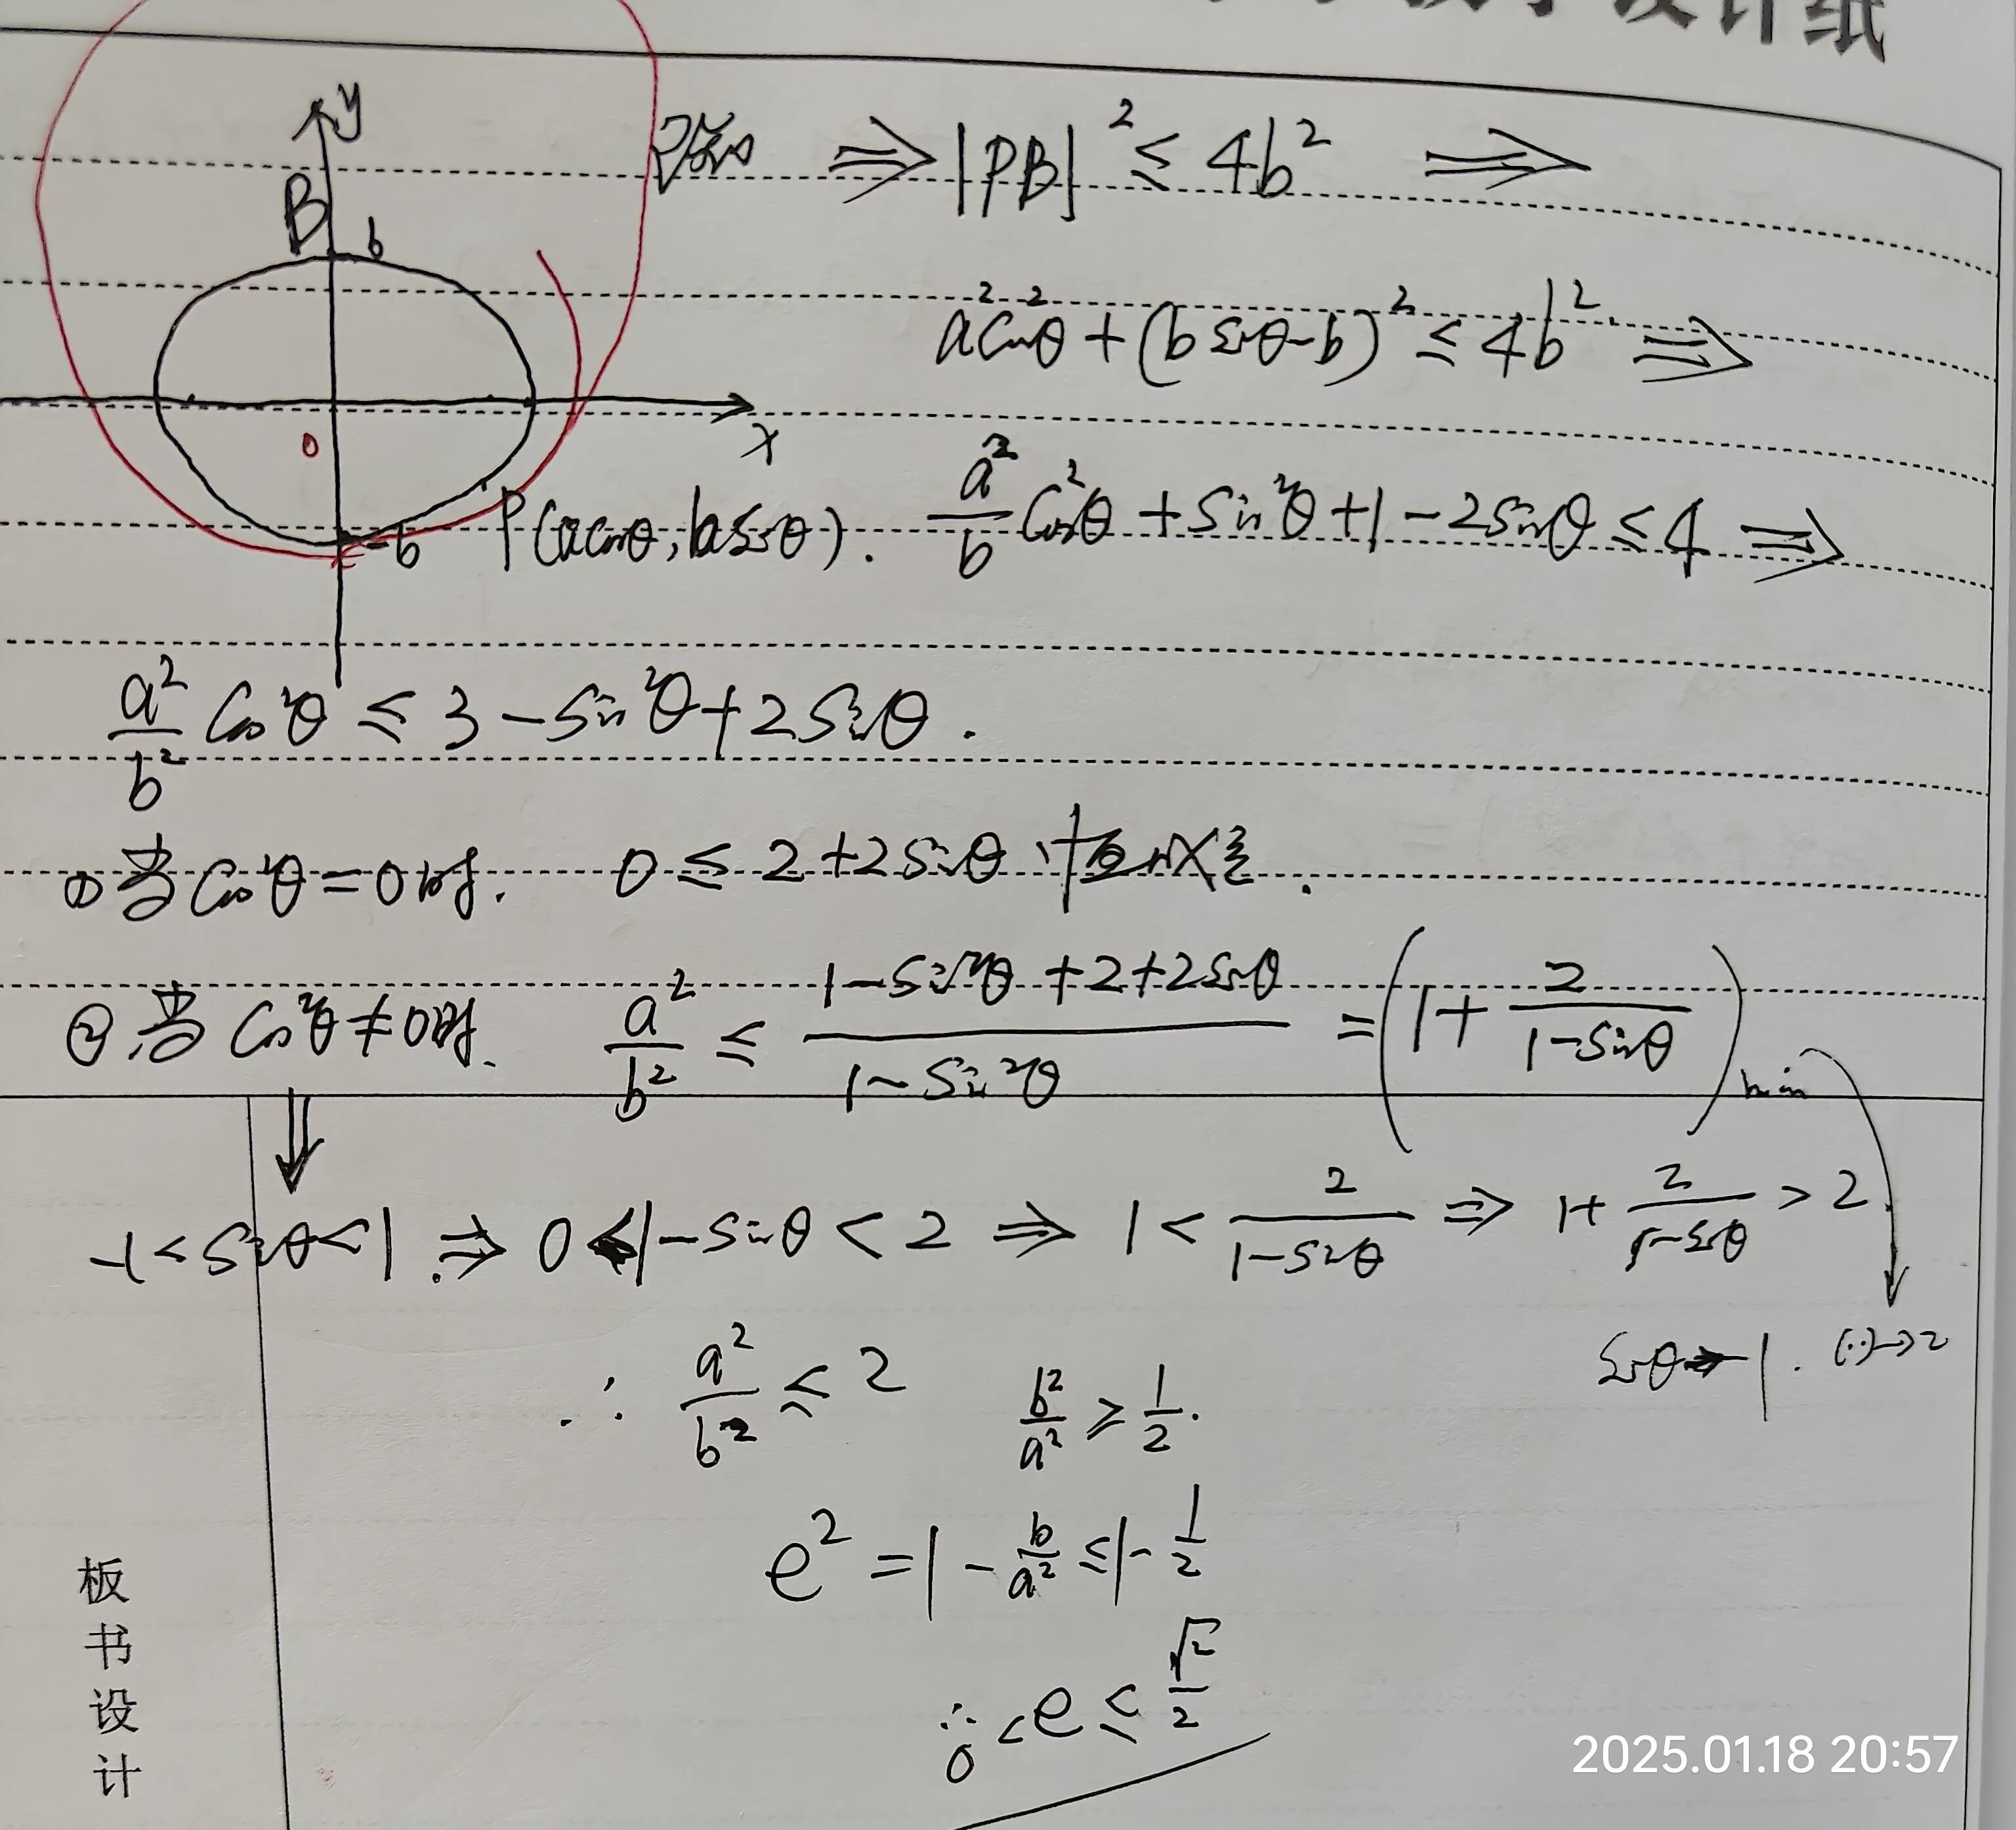 设计纸
y
B b
|PB|² ≤ 4b² ⇒
a²cos²θ + (b sinθ - b)² ≤ 4b². ⇒
O x
-b P(acosθ, bsinθ). a²/b cos²θ + sin²θ + 1 - 2sinθ ≤ 4 ⇒
a²/b² cos²θ ≤ 3 - sin²θ + 2sinθ.
① 当cos²θ = 0时. 0 ≤ 2 + 2sinθ 恒成立.
② 当cos²θ ≠ 0时. a²/b² ≤ (1 - sin²θ + 2 + 2sinθ)/(1 - sin²θ) = (1 + 2/(1 - sinθ))min
-1 < sinθ < 1 ⇒ 0 < 1 - sinθ < 2 ⇒ 1 < 2/(1 - sinθ) ⇒ 1 + 2/(1 - sinθ) > 2
sinθ → -1. (··) → 2
∴ a²/b² ≤ 2 b²/a² ≥ 1/2.
e² = 1 - b/a² ≤ 1 - 1/2
∴ 0 < e ≤ √2/2
板书设计
2025.01.18 20:57